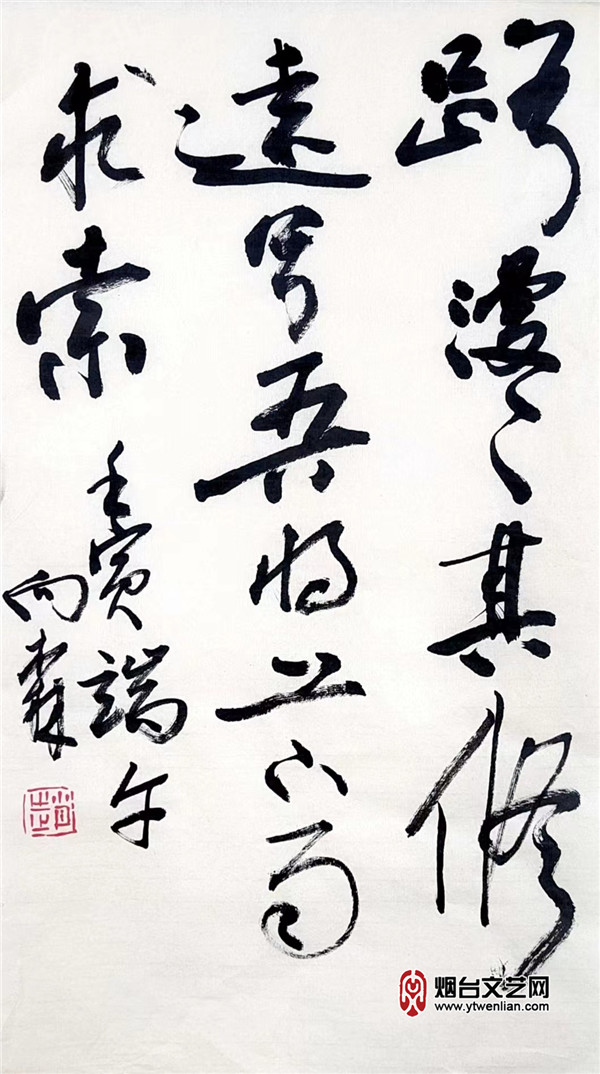 路漫〻其修
远兮吾将上下而
求索
壬寅端午
向森
烟台文艺网
www.ytwenlian.com